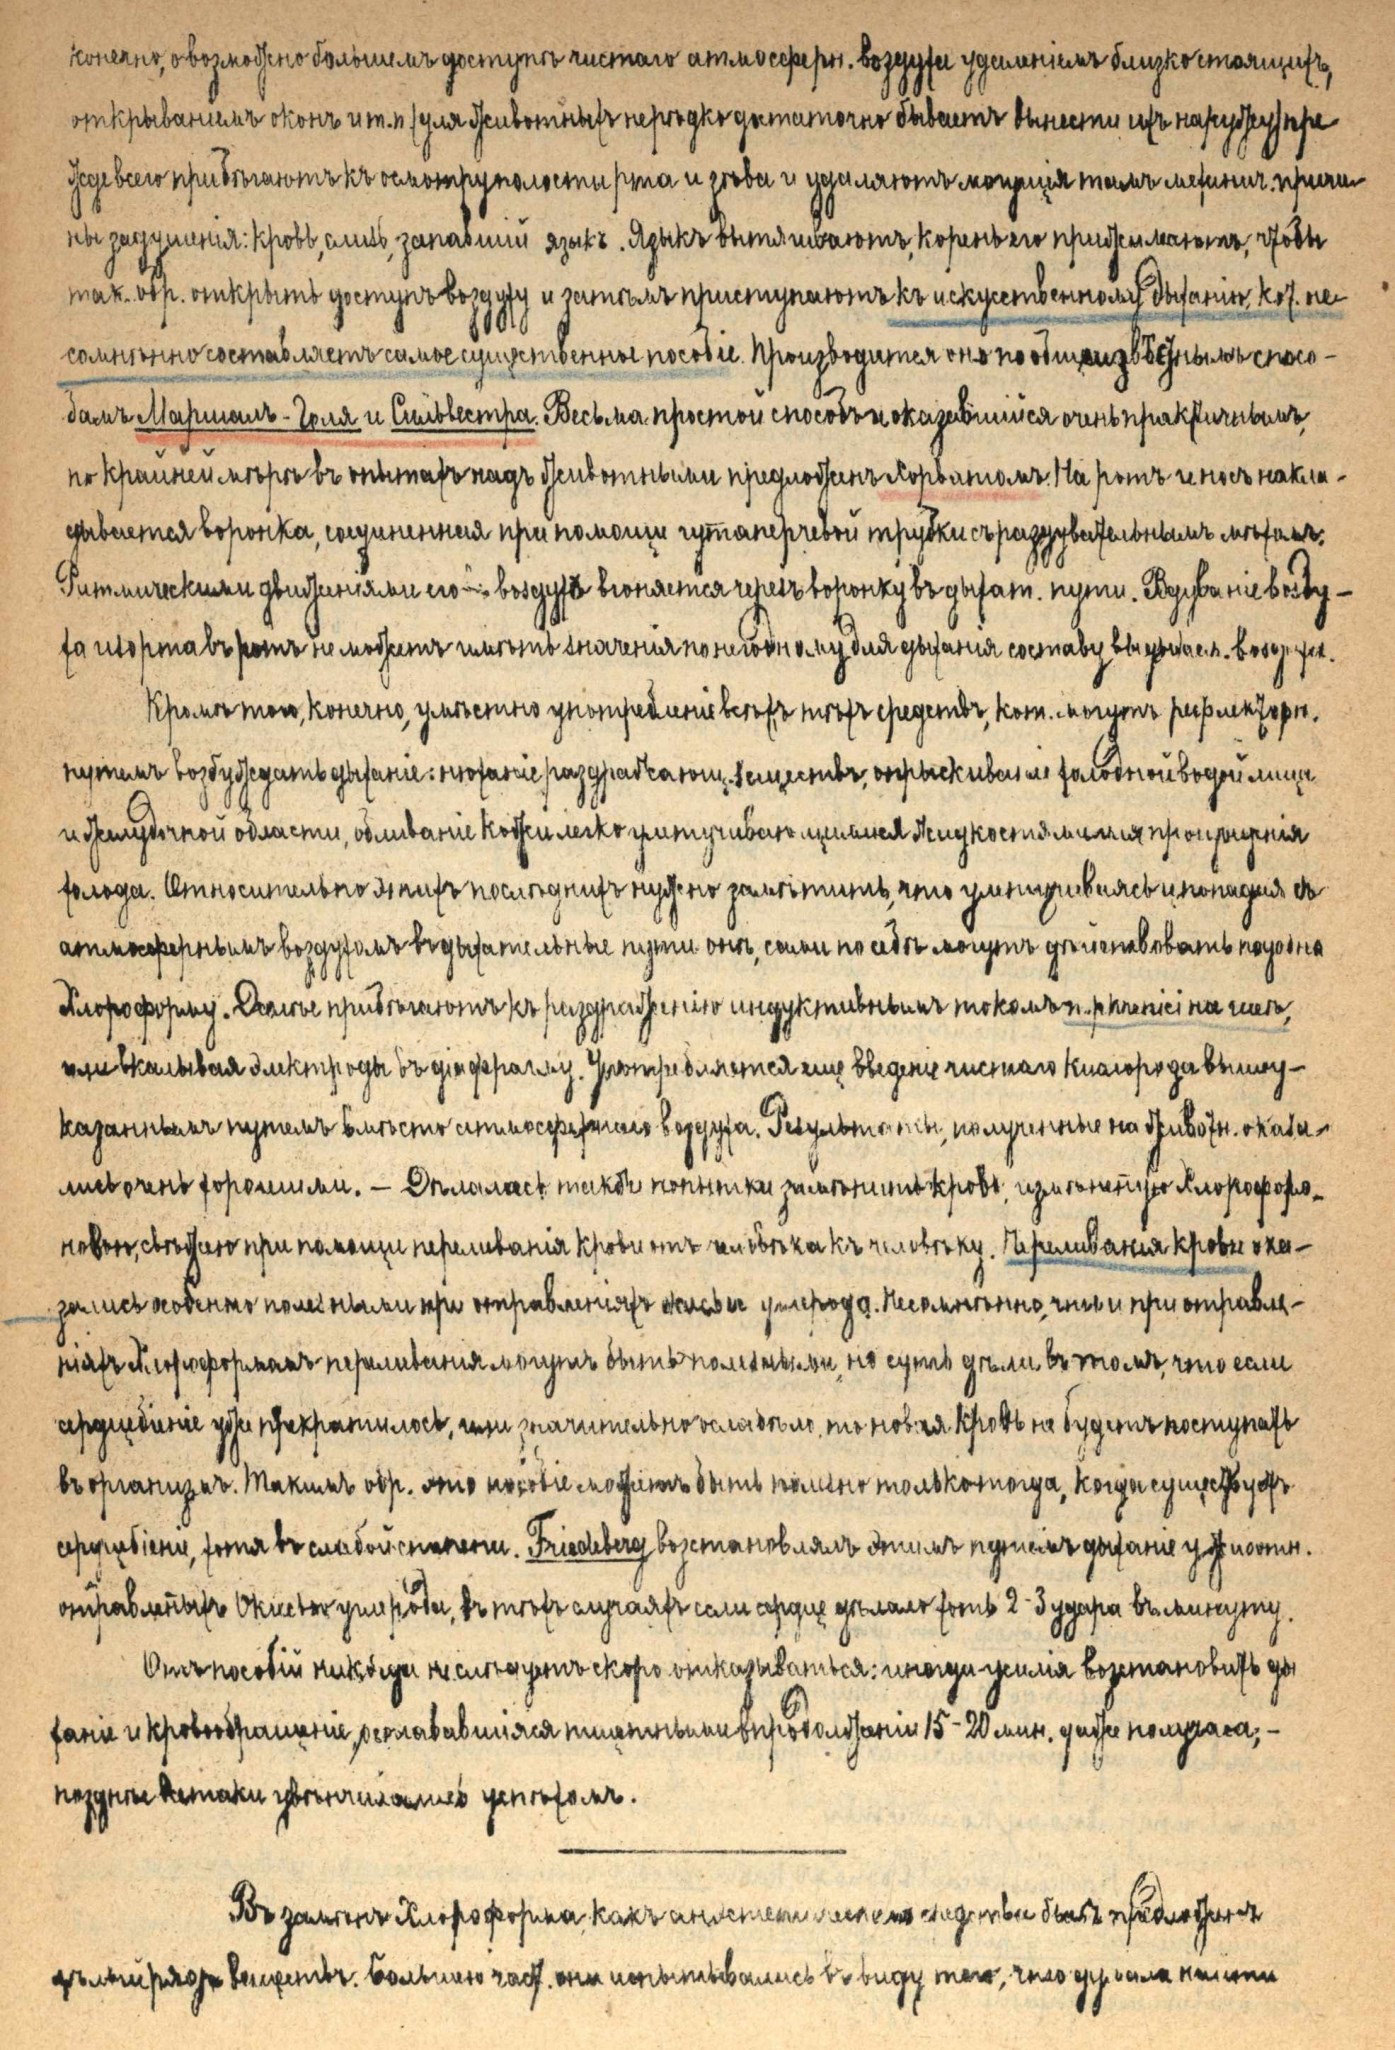 конечно, о возможно большемъ доступѣ чистаго атмосферн. воздуха удаленіемъ близко стоящихъ,
открываніемъ оконъ и т.п. (для животныхъ нерѣдко достаточно бываетъ вынести ихъ наружу) пре
жде всего прибѣгаютъ къ осмотру полости рта и зѣва и удаляютъ могущія тамъ механич. причи-
ны задушенія: кровь, слизь, запавшій языкъ. Языкъ вытягиваютъ, корень его прижимаютъ, чтобы
так. обр. открыть доступъ воздуху и затѣмъ приступаютъ къ искусственному дыханію, кот. не-
сомнѣнно составляетъ самое существенное пособіе. Производится оно по общеизвѣстнымъ спосо-
бамъ Маршалъ-Голя и Сильвестра. Весьма простой способъ и оказавшійся очень практичнымъ,
по крайней мѣрѣ въ опытахъ надъ животными предложенъ Хорватомъ. На ротъ и носъ накла-
дывается воронка, соединенная при помощи гутаперчевой трубки съ раздувательнымъ мѣхомъ.
Ритмическими движеніями его воздухъ вгоняется черезъ воронку въ дыхат. пути. Вдуваніе возду-
ха изо рта въ ротъ не можетъ имѣть значенія по негодному для дыханія составу выдыхаем. воздуха.
Кромѣ того, конечно, умѣстно употребленіе всѣхъ тѣхъ средствъ, кот. могутъ рефлекторн.
путемъ возбуждать дыханіе: нюханіе раздражающ. веществъ, опрыскиваніе холодной водой лица
и желудочной области, обливаніе кожи легко улетучивающимися жидкостями для произведенія
холода. Относительно этихъ послѣднихъ нужно замѣтить, что улетучиваясь и попадая съ
атмосфернымъ воздухомъ въ дыхательные пути онѣ, сами по себѣ могутъ дѣйствовать подобно
Хлороформу. Далѣе прибѣгаютъ къ раздраженію индуктивнымъ токомъ n. phrenici на шеѣ,
или вкалывая электроды въ діафрагму. Употребляется еще введеніе чистаго кислорода вышеу-
казаннымъ путемъ вмѣсто атмосфернаго воздуха. Результаты, полученные на животн. оказа-
лись очень хорошими. — Дѣлалась также попытки замѣнить кровь, измѣненную Хлороформо-
новою, свѣжею при помощи переливанія крови отъ человѣка къ человѣку. Переливанія крови ока-
зались особенно полезными при отравленіяхъ окисью углерода. Несомнѣнно, что и при отравле-
ніяхъ Хлороформомъ переливанія могутъ быть полезными, но суть дѣла въ томъ, что если
сердцебіеніе уже прекратилось, или значительно ослабѣло, то новая кровь не будетъ поступать
въ организмъ. Такимъ обр. это пособіе можетъ быть полезно только тогда, когда существуетъ
сердцебіеніе, хотя въ слабой степени. Friedeberg возстановлялъ этимъ путемъ дыханіе у животн.
отравленныхъ окисью углерода, въ тѣхъ случаяхъ если сердце дѣлало хоть 2-3 удара въ минуту.
Отъ пособій никогда не слѣдуетъ скоро отказываться: иногда усилія возстановить ды
ханіе и кровообращеніе, остававшіяся тщетными впродолженіи 15-20 мин. даже получаса, -
позднѣе всетаки увѣнчивались успѣхомъ.
Въ замѣнъ Хлороформа, какъ анэстетическаго средства былъ предложенъ
цѣлый рядъ веществъ. Большею част. они испытывались въ виду того, чтобы найти